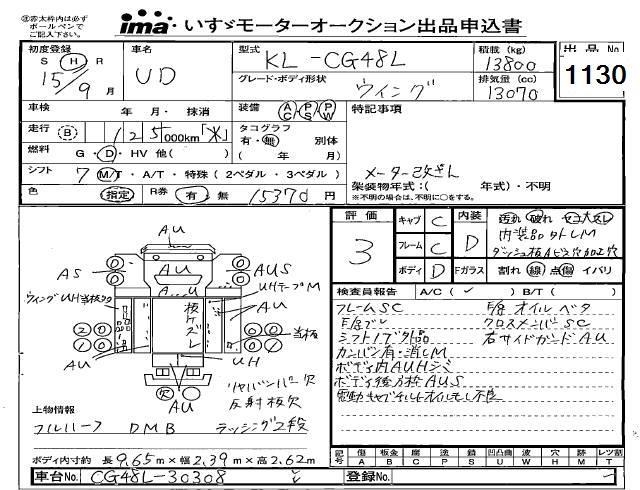 ㊟赤太枠内は必ず
ボールペンで
ご記入下さい。
ima いすゞモーターオークション出品申込書
初度登録
S H R
15年9月
車名
UD
型式
KL-CG48L
グレード・ボディ形状
ウイング
積載 (kg)
13800
排気量 (cc)
13070
出品 No
1130
車検 年 月・ 抹消
装備 AC PS PW
特記事項
走行 B 125,000km「米」
タコグラフ
有・無 別体
( 年 月)
燃料 G・D・HV 他( )
メーター改ざし
シフト 7 M/T・A/T・特殊 (2ペダル・3ペダル)
架装物年式:( 年式)・不明
※不明の場合は、不明に○をする。
色 指定 R券 有・無 15370円
評価
3
キャブ C
フレーム C
ボディ D
内装 D
Fガラス
汚れ 破れ セコ大スレ
内装品タトレM
ダッシュ板Aビス穴加工穴
割れ 線 点傷 イバリ
検査員報告 A/C( ) B/T( )
フレームSC
下廻オイルベタ
クロスメンバーSC
右サイドガードAU
カンバン有・消しM
ボディ内AUHシミ
ボディ後方枠AUS
電動キャブチルトオイルモレ不良
AU
AS
AU
AUS
UHテープM
A U
AU
ウイングUH当板タク
板ケズレ
当板
AU
UH
AU
リヤバンパー欠
反射板欠
上物情報
フルハーフ DMB ラッシング2段
ボディ内寸約 長9.65m×幅2.39m×高2.62m
記号
傷 A
板金 B
腐 C
塗 P
錆 S
凹凸曲 U
波 W
穴 H
跡 M
レツ割 T
車台No. CG48L-30308
登録No.